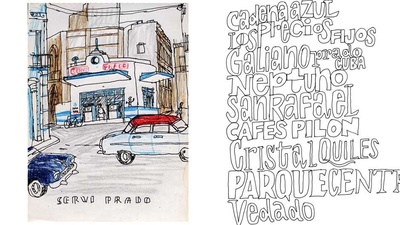 SERVI PRADO
cadena azul
los precios fijos
Galiano prado
CUBA
Neptuno
San Rafael
CAFES PILON
Cristal QUILES
PARQUE CENT
Vedado